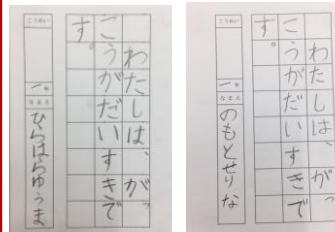 わたしは、がっ
こうがだいすきで
す。
一 なまえ ひらはらゆうま
わたしは、がっ
こうがだいすきで
す。
一 なまえ のもとせりな